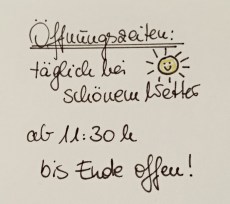 Öffnungszeiten:
täglich bei
schönem Wetter
ab 11:30 h
bis Ende offen!